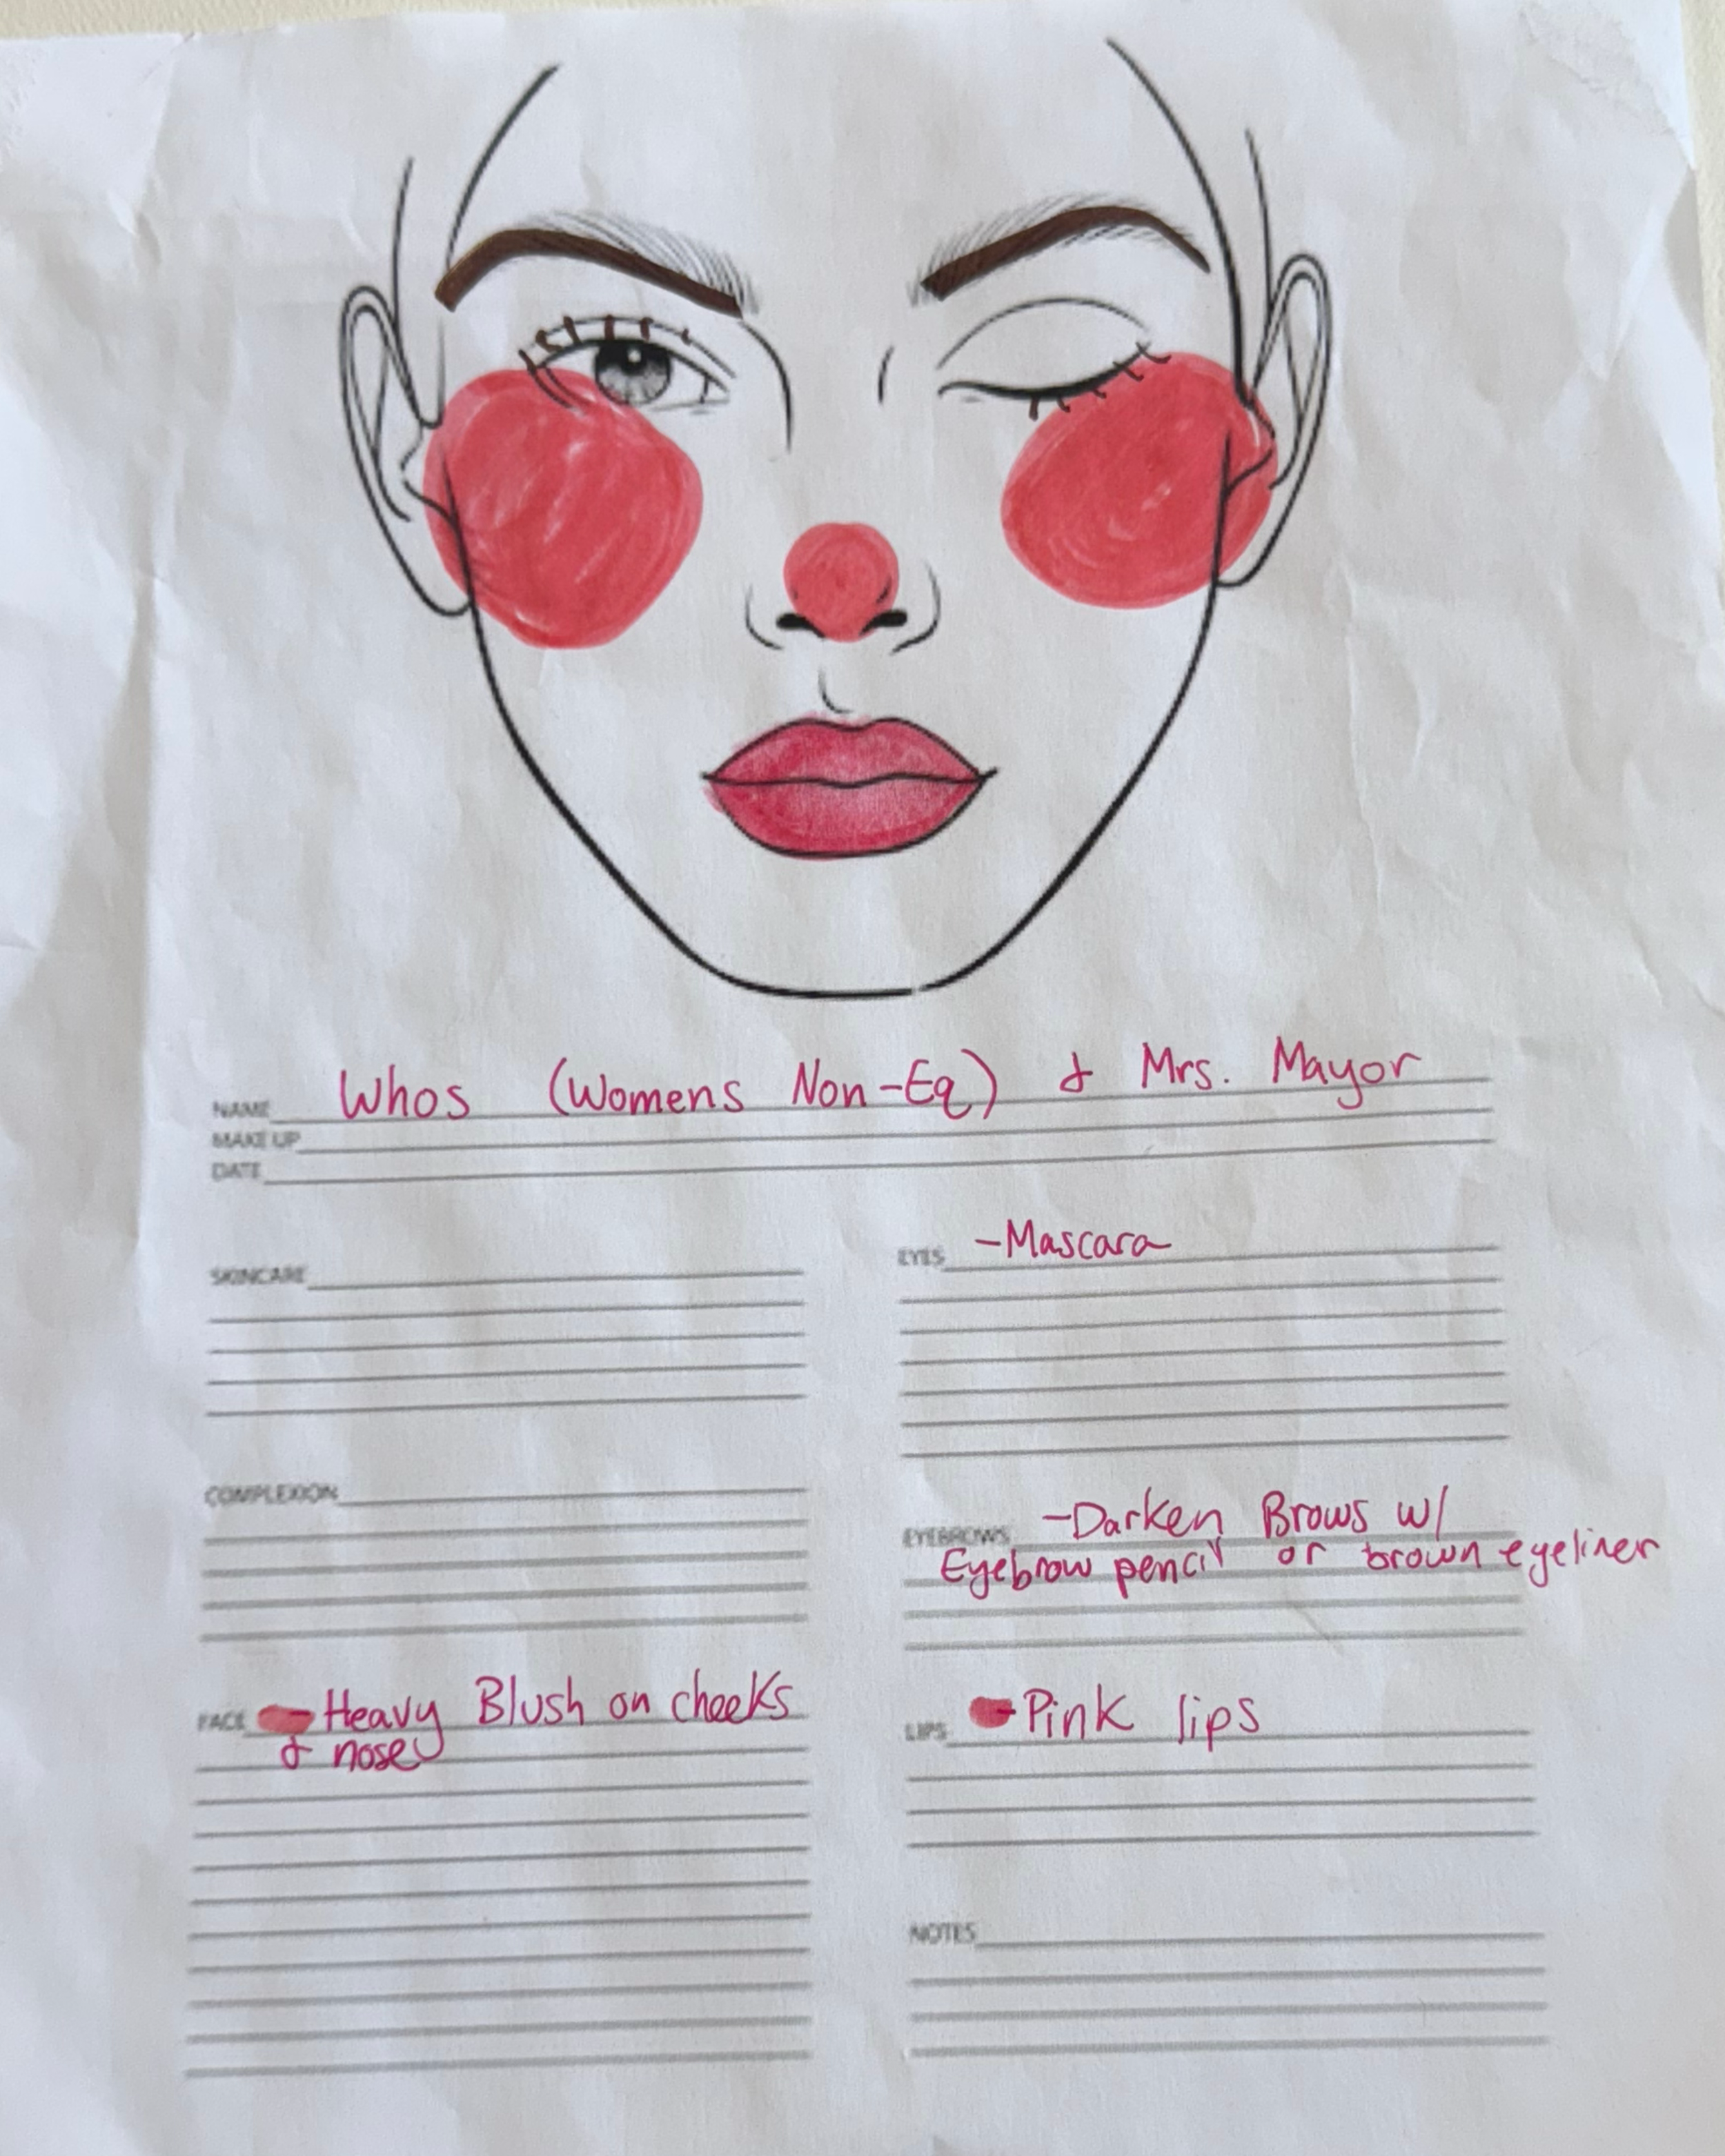 NAME Whos (Womens Non-Eq) & Mrs. Mayor
MAKE UP
DATE
SKINCARE
EYES -Mascara
COMPLEXION
EYEBROWS -Darken Brows w/
Eyebrow pencil or brown eyeliner
FACE -Heavy Blush on cheeks
& nose
LIPS -Pink lips
NOTES